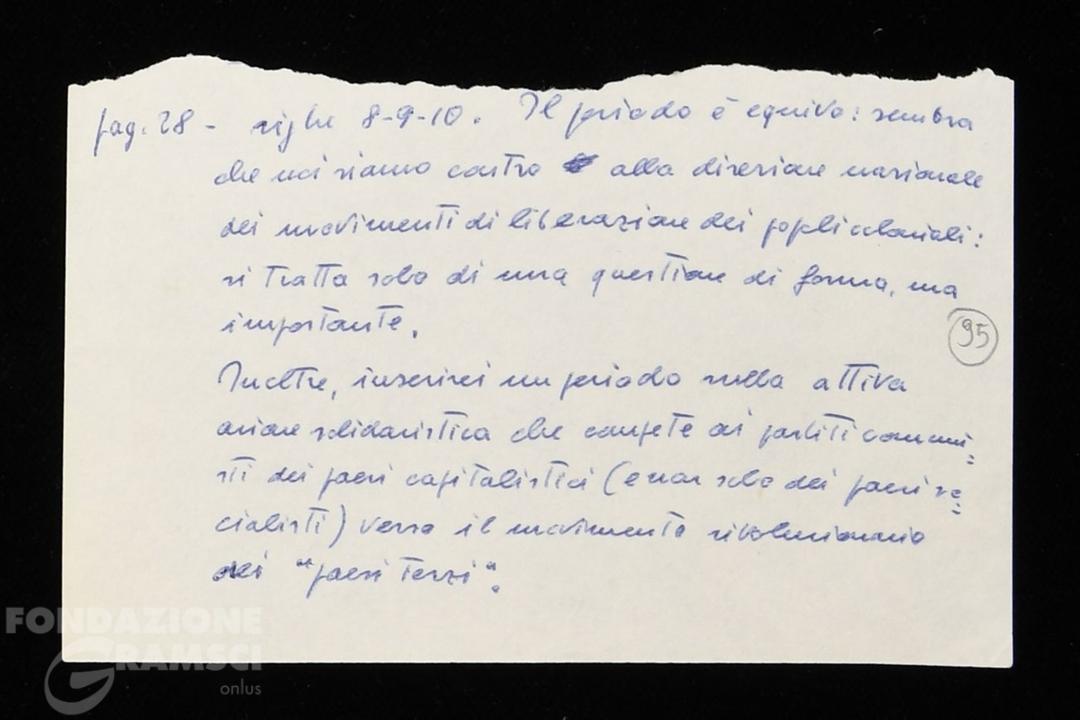 pag. 28 - righe 8-9-10. Il periodo è equivo: sembra
che noi siamo contro alla direzione nazionale
dei movimenti di liberazione dei popoli coloniali:
si tratta solo di una questione di forma, ma
importante.
95
Inoltre, inserirei un periodo sulla attiva
azione solidaristica che compete ai partiti comuni=
sti dei paesi capitalistici (e non solo dei paesi so=
cialisti) verso il movimento rivoluzionario
dei "paesi terzi".
FONDAZIONE
GRAMSCI
onlus